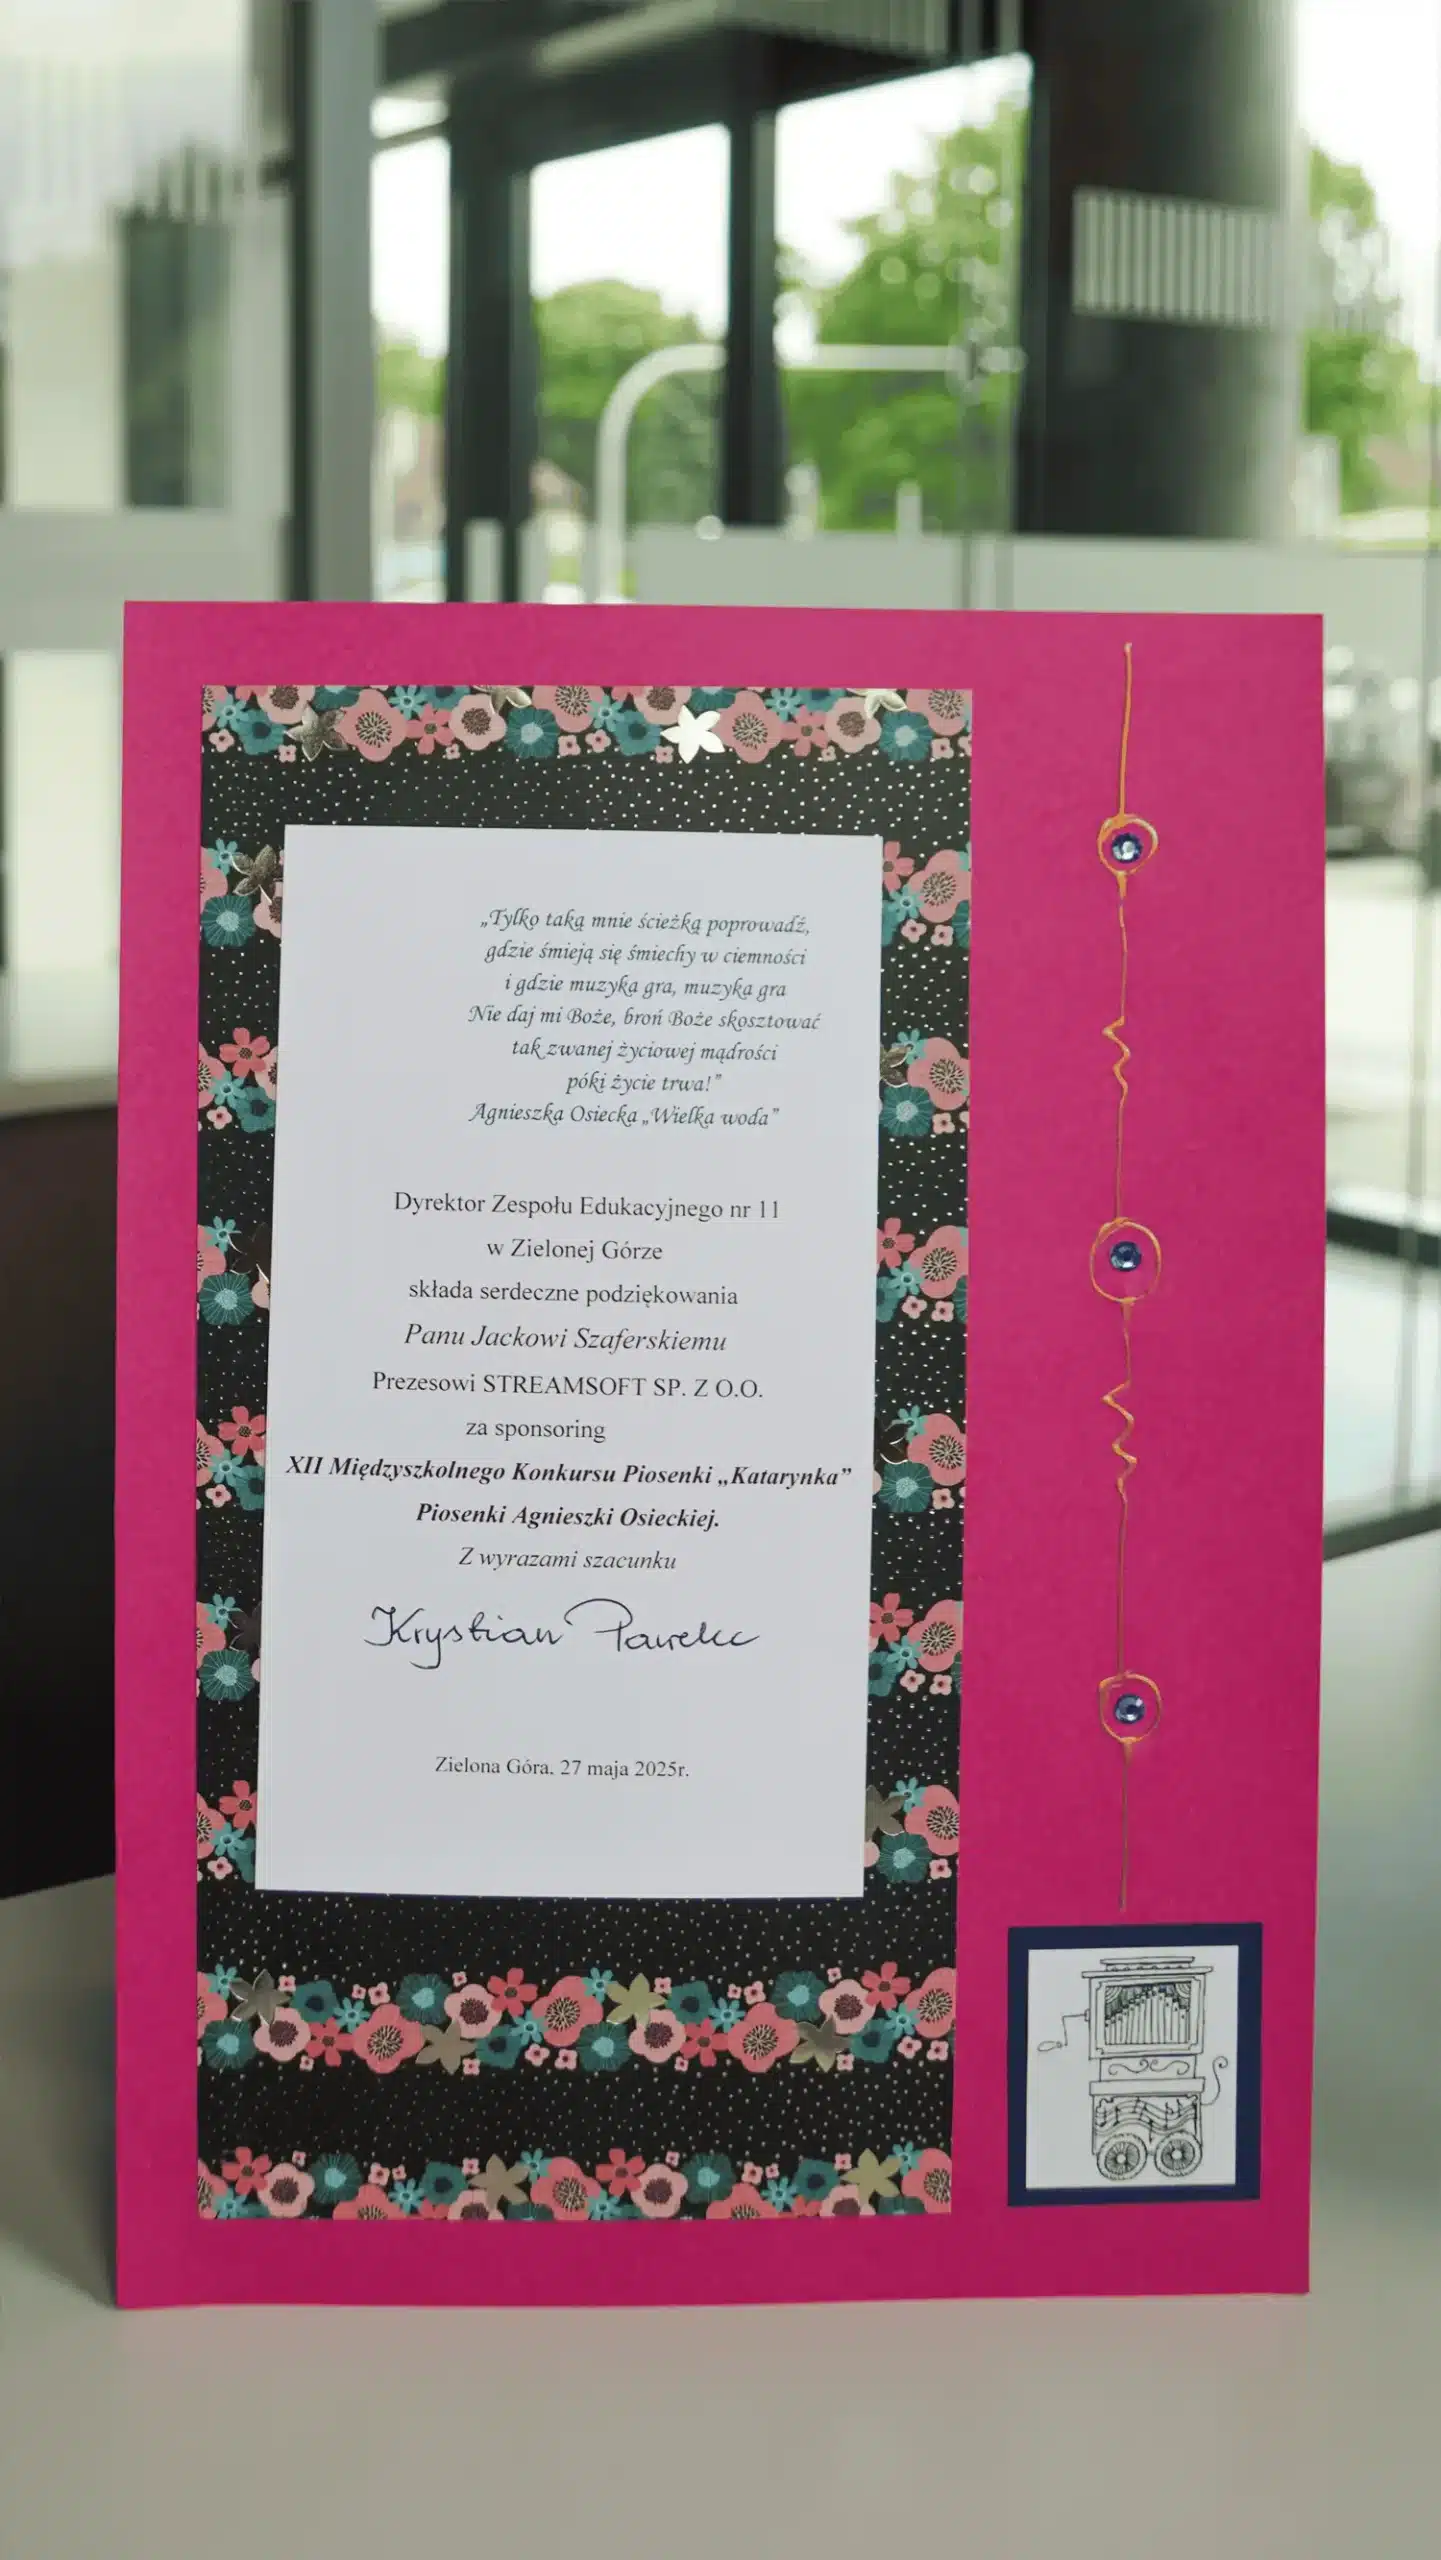 „Tylko taką mnie ścieżką poprowadź,
gdzie śmieją się śmiechy w ciemności
i gdzie muzyka gra, muzyka gra
Nie daj mi Boże, broń Boże skosztować
tak zwanej życiowej mądrości
póki życie trwa!”
Agnieszka Osiecka „Wielka woda”
Dyrektor Zespołu Edukacyjnego nr 11
w Zielonej Górze
składa serdeczne podziękowania
Panu Jackowi Szaferskiemu
Prezesowi STREAMSOFT SP. Z O.O.
za sponsoring
XII Międzyszkolnego Konkursu Piosenki „Katarynka”
Piosenki Agnieszki Osieckiej.
Z wyrazami szacunku
Krystian Pawelec
Zielona Góra. 27 maja 2025r.